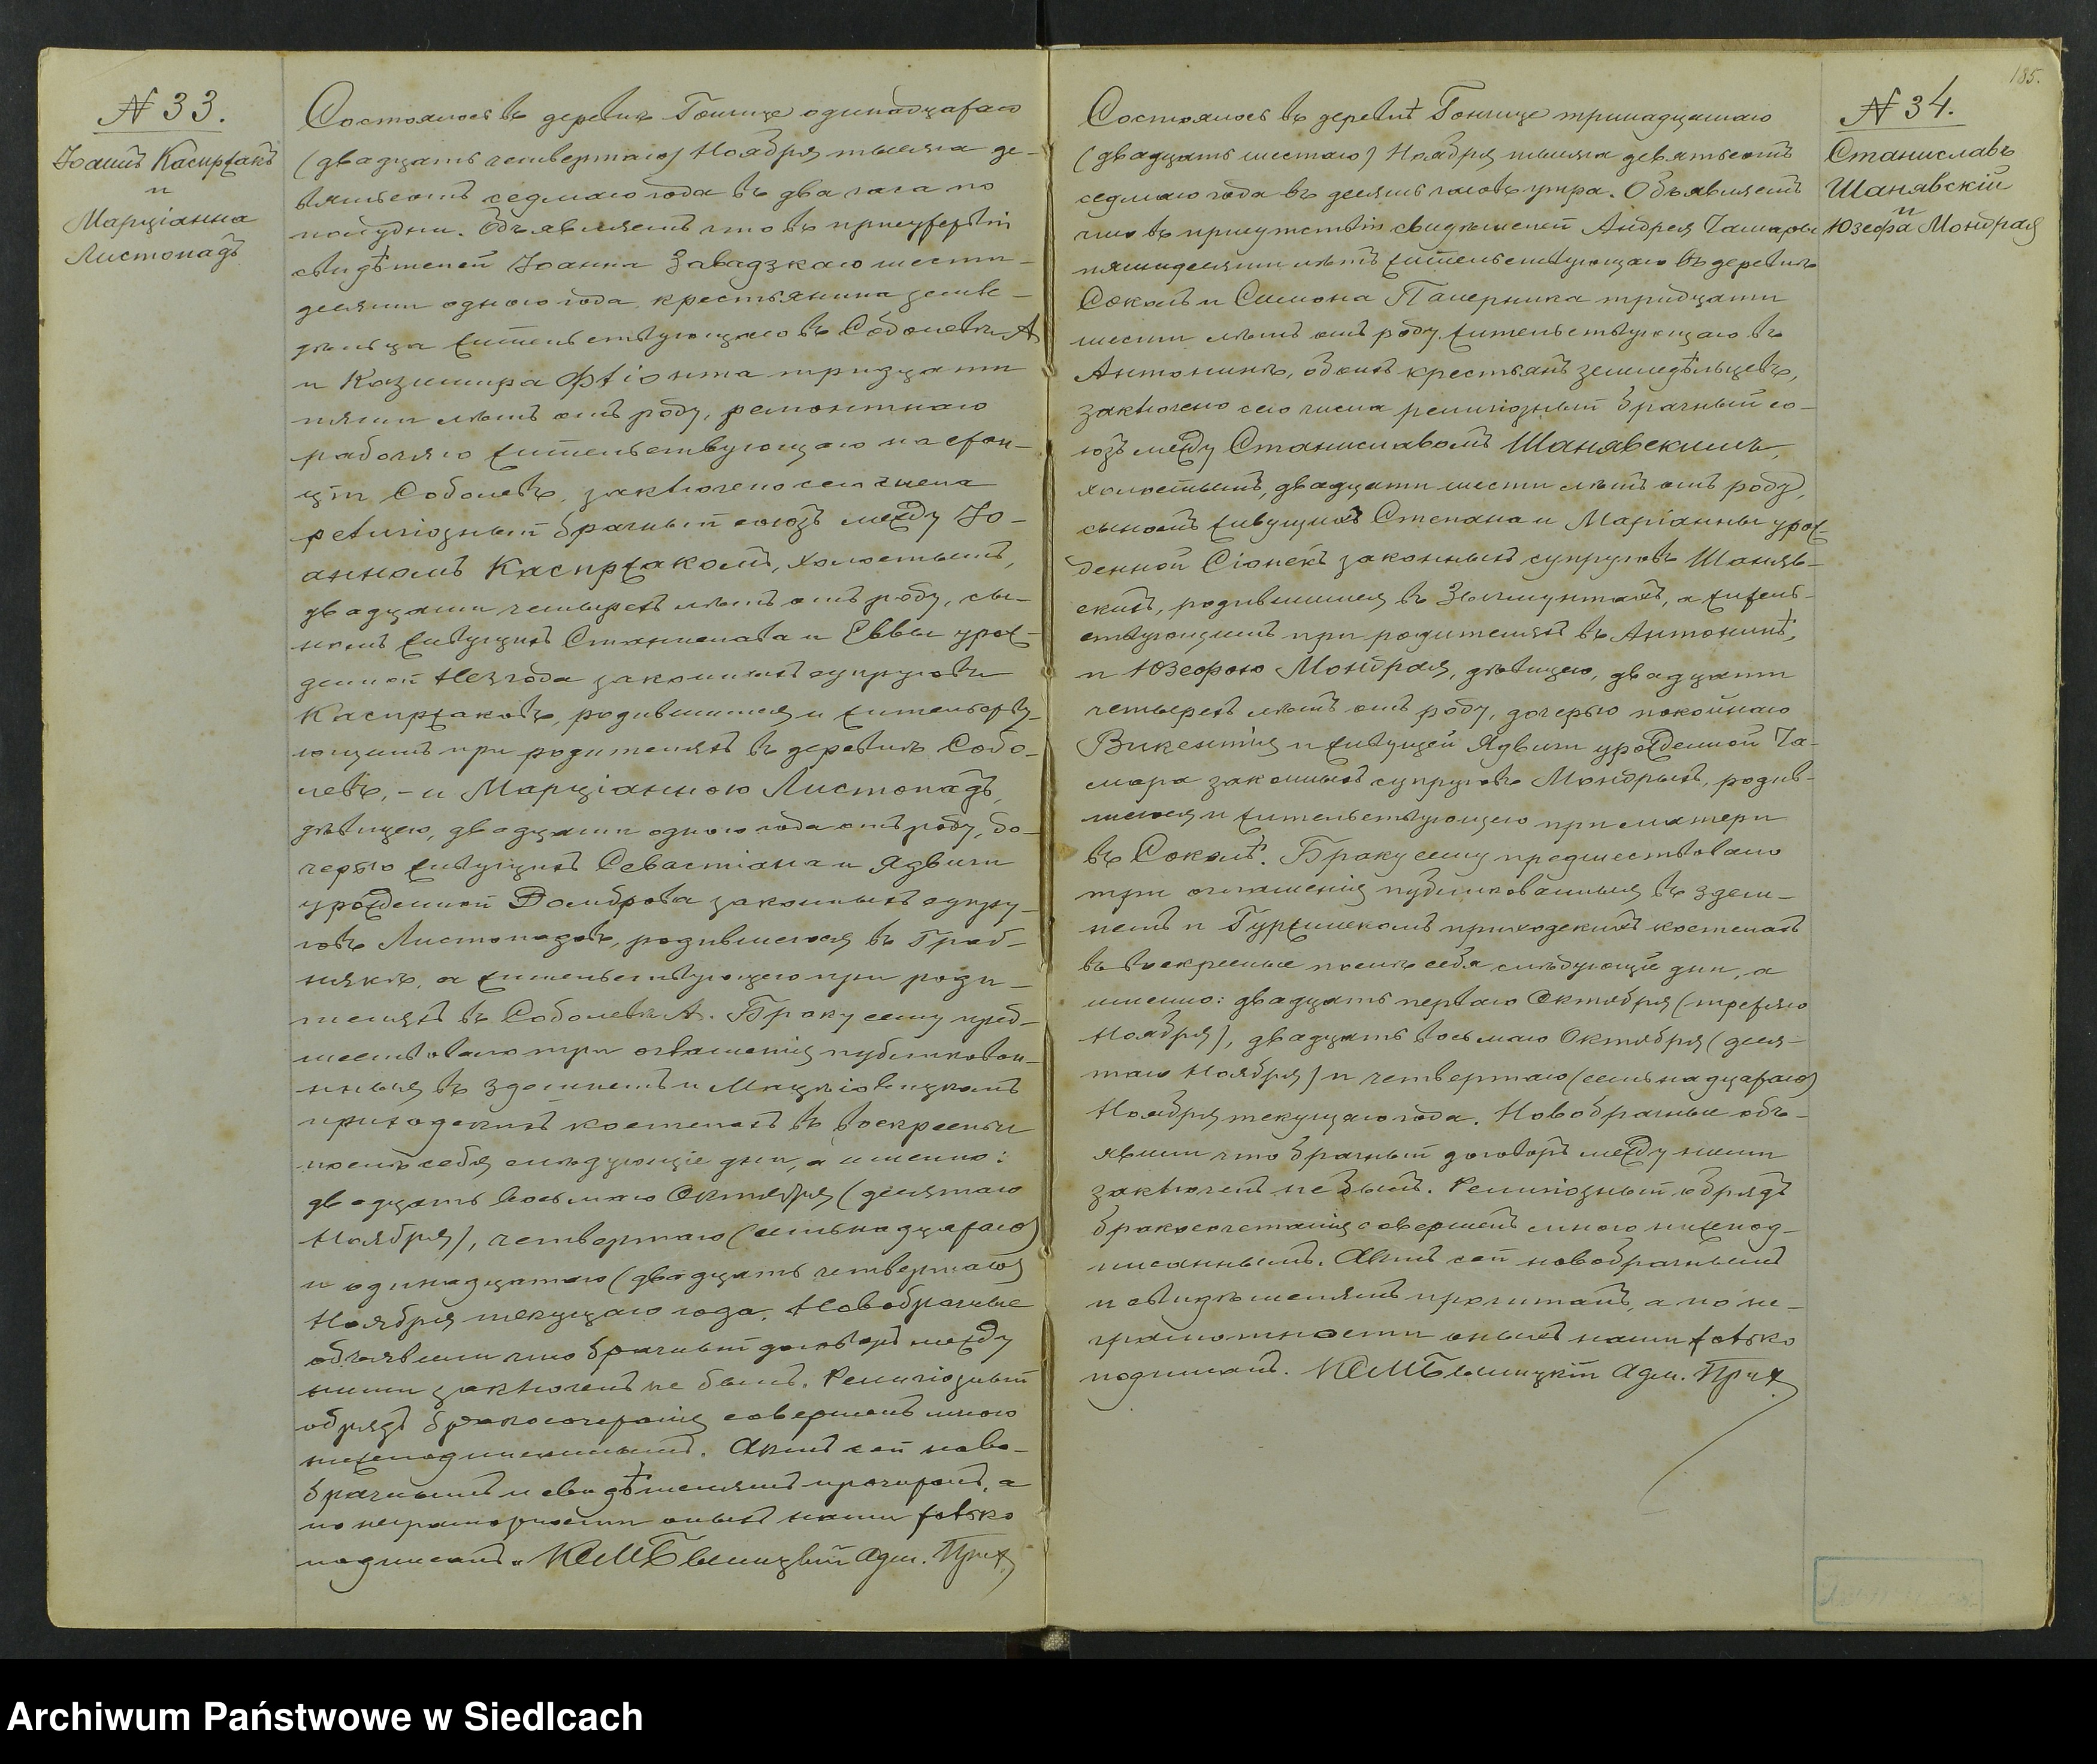 № 33.
Іоаннъ Каспржакъ
и
Марціанна
Листопадъ
Состоялось въ деревнѣ Гончице одинадцатаго
(двадцать четвертаго) Ноября тысяча де-
вятьсотъ седмаго года въ два часа по
полудни. Объявляемъ что въ присутствіи
свидѣтелей Іоанна Завадзкаго шести-
десяти одного года, крестьянина земле-
дѣльца жительствующаго въ Соболевѣ А
и Казимира Фіонта тридцати
пяти лѣтъ отъ роду, ремонтнаго
рабочаго жительствующаго на стан-
ціи Соболевъ, заключено сего числа
религіозный брачный союзъ между Іо-
анномъ Каспржакомъ, холостымъ,
двадцати четырехъ лѣтъ отъ роду, сы-
номъ живущихъ Станислава и Еввы урож-
денной Незгода законныхъ супруговъ
Каспржаковъ, родившимся и жительству-
ющимъ при родителяхъ въ деревнѣ Собо-
левъ, - и Марціанною Листопадъ,
дѣвицею, двадцати одного года отъ роду, до-
черью живущихъ Севастіана и Ядвиги
урожденной Домброва законныхъ супру-
говъ Листопадовъ, родившеюся въ Граб-
някѣ, а жительствующею при роди-
теляхъ въ Соболевѣ А. Браку сему пред-
шествовало три оглашенія публикован-
ныя въ здешнемъ и Мацѣіовицкомъ
приходскихъ костелахъ въ воскресные
послѣ себя слѣдующіе дни, а именно:
двадцать восьмаго Октября (девятаго
Ноября), четвертаго (семьнадцатаго)
и одинадцатаго (двадцать четвертаго)
Ноября текущаго года. Новобрачные
объявили что брачный договоръ между
ними заключенъ не былъ. Религіозный
обрядъ бракосочетанія совершенъ мною
нижеподписаннымъ. Актъ сей ново-
брачнымъ и свидѣтелямъ прочитанъ, а
по неграмотности оныхъ нами только
подписанъ. Адм. Прих.
185.
№ 34.
Станиславъ
Шанявскій
и
Юзефа Мондрая
Состоялось въ деревнѣ Гончице тринадцатаго
(двадцать шестаго) Ноября тысяча девятьсотъ
седмаго года въ десять часовъ утра. Объявляемъ
что въ присутствіи свидѣтелей Андрея Чамары
пятидесяти лѣтъ жительствующаго въ деревнѣ
Соколъ и Симона Паперника тридцати
шести лѣтъ отъ роду жительствующаго въ
Антонинѣ, обоихъ крестьянъ земледѣльцевъ,
заключено сего числа религіозный брачный со-
юзъ между Станиславомъ Шанявскимъ,
холостымъ, двадцати шести лѣтъ отъ роду,
сыномъ живущихъ Степана и Маріанны урож-
денной Сіонекъ законныхъ супруговъ Шаняв-
скихъ, родившимся въ Зыгмунтахъ, а житель-
ствующимъ при родителяхъ въ Антонинѣ,
и Юзефою Мондрая, дѣвицею, двадцати
четырехъ лѣтъ отъ роду, дочерью покойнаго
Викентія и живущей Ядвиги урожденной Ча-
мара законныхъ супруговъ Мондрыхъ, родив-
шеюся и жительствующею при матери
въ Соколѣ. Браку сему предшествовало
три оглашенія публикованныя въ здеш-
немъ и Гуржицкомъ приходскихъ костелахъ
въ воскресные послѣ себя слѣдующіе дни, а
именно: двадцать перваго Октября (третьяго
Ноября), двадцать восьмаго Октября (девя-
таго Ноября) и четвертаго (семьнадцатаго)
Ноября текущаго года. Новобрачные объ-
явили что брачный договоръ между ними
заключенъ не былъ. Религіозный обрядъ
бракосочетанія совершенъ мною нижепод-
писаннымъ. Актъ сей новобрачнымъ
и свидѣтелямъ прочитанъ, а по не-
грамотности оныхъ нами только
подписанъ. Адм. Прих.
Archiwum Państwowe w Siedlcach